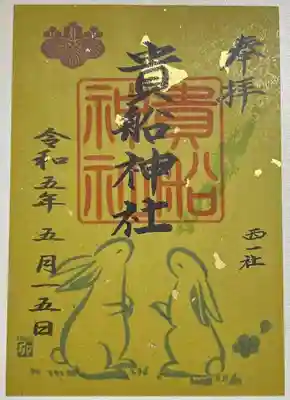 奉拝
西一社
貴船神社
貴船神社
令和五年 五月一五日
卯